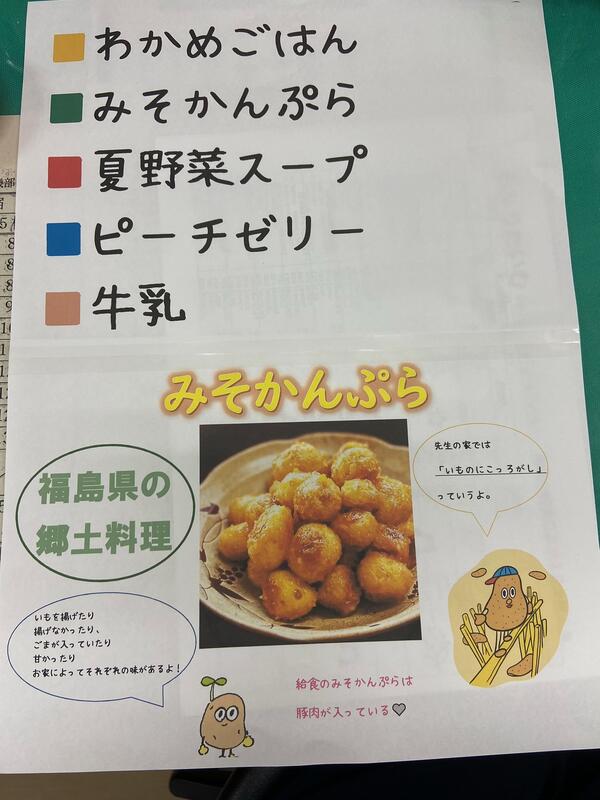 わかめごはん
みそかんぷら
夏野菜スープ
ピーチゼリー
牛乳
みそかんぷら
福島県の
郷土料理
先生の家では
「いものにこっろがし」
っていうよ。
いもを揚げたり
揚げなかったり、
ごまが入っていたり
甘かったり
お家によってそれぞれの味があるよ!
給食のみそかんぷらは
豚肉が入っている